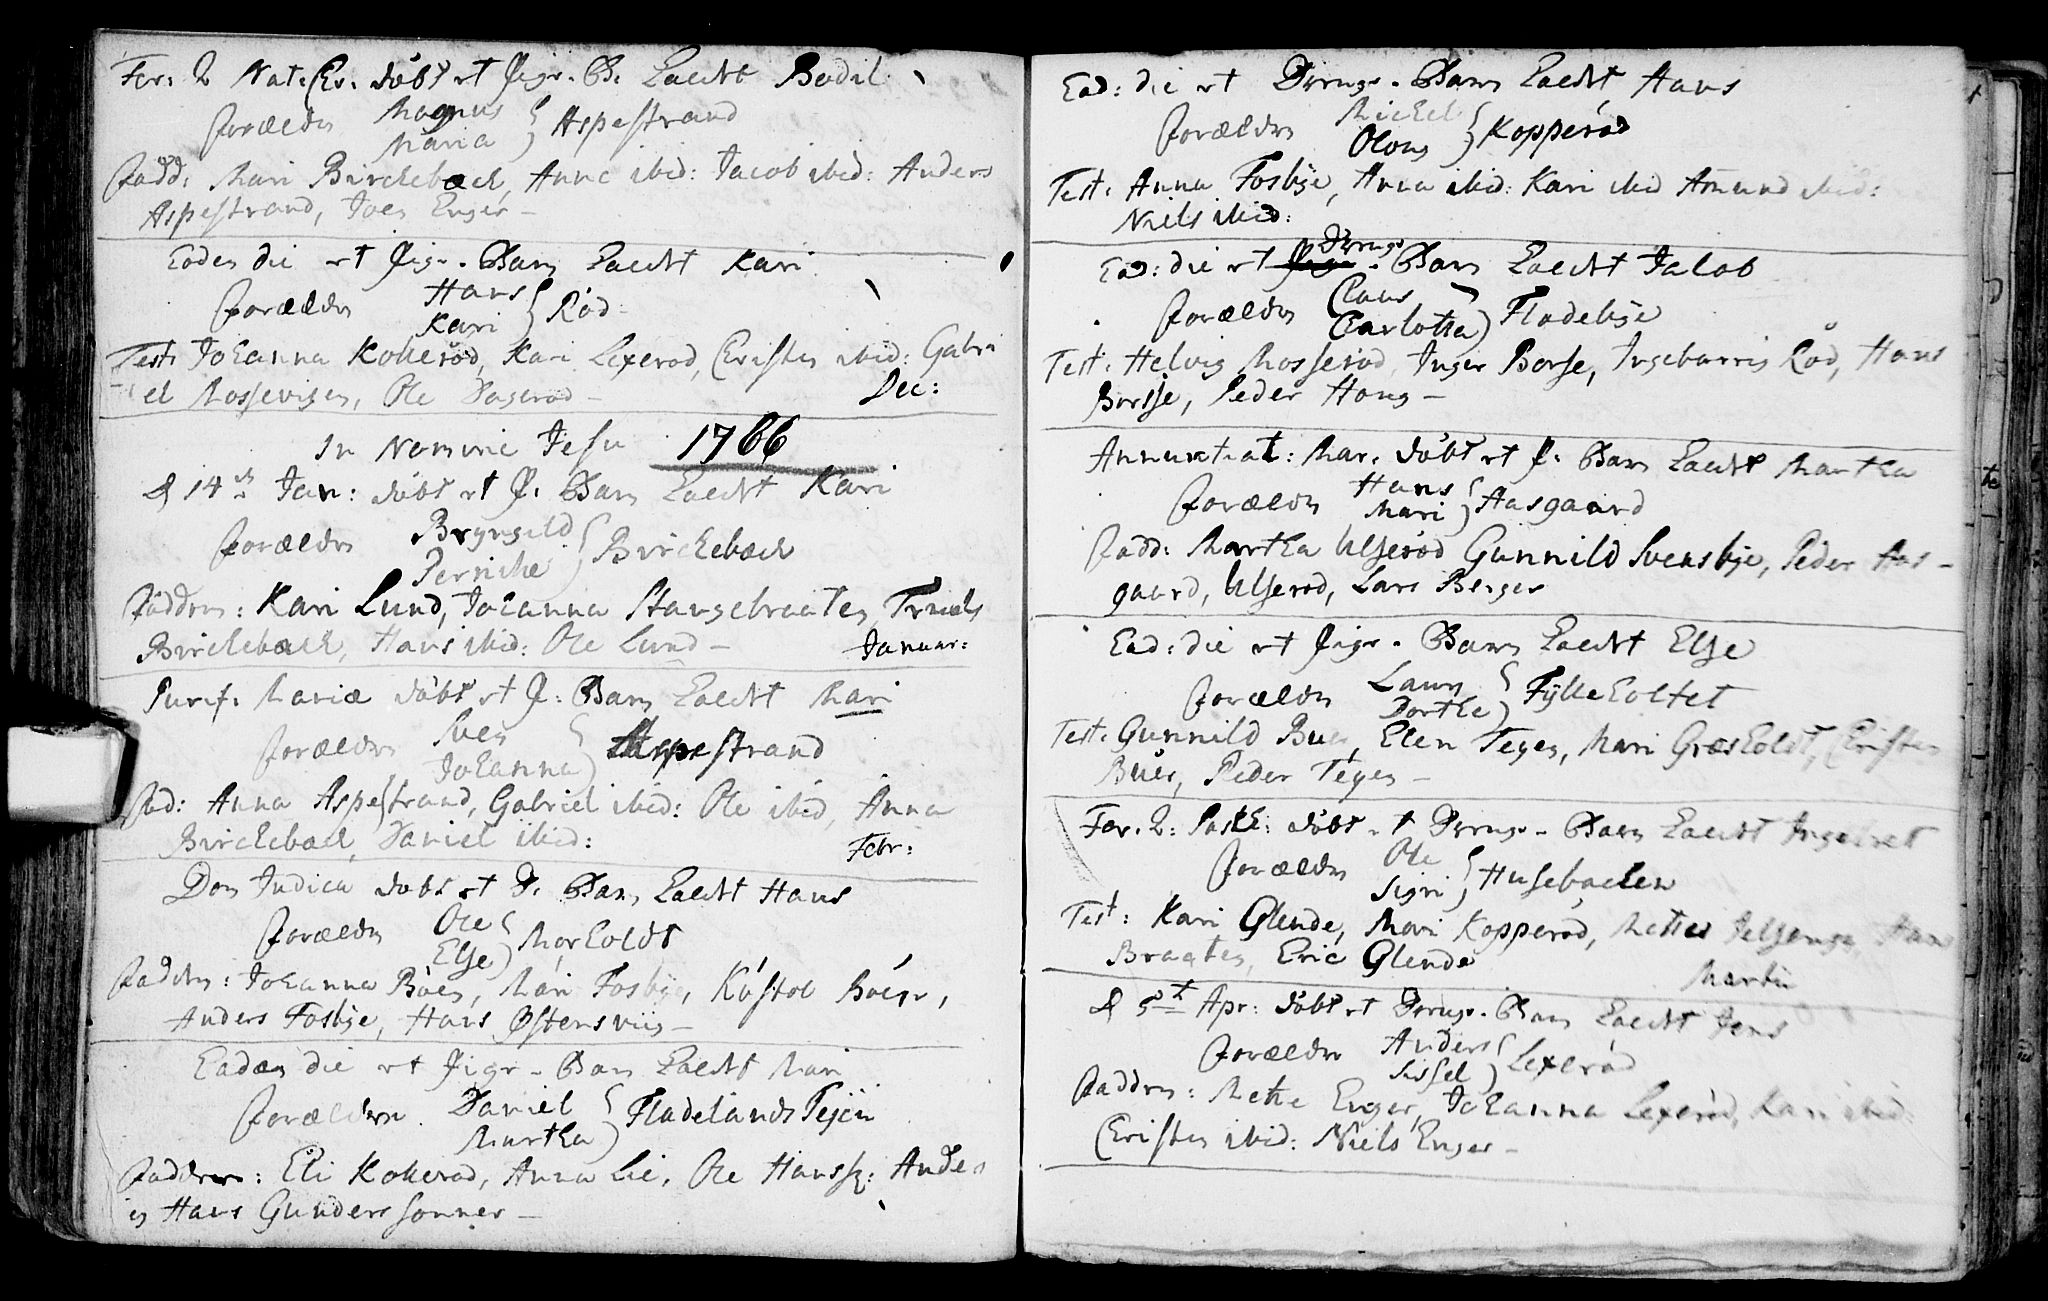 Fer: 2 Nat: Chr. döbt et Pige. B. kaldt Bodil
forældre Magnus Maria } Aspestrand
Fadd: Mari Birchebæck, Anne ibid: Jacob ibid: Anders
Aspestrand, Joen Enger –
Eoden die et Pige. Barn kaldt Kari
forældre Hans Kari } Röd
Test: Johanna Kolleröd, Kari Lexeröd, Christen ibid: Gabri
el Mossevigen, Ole
Dec:
In Nomine Jesu 1766
d 14de Jan: döbt et P. Barn kaldt Kari
forældre Brynild Pernille } Birchebæck
Faddere: Kari Lund, Johanna Stangebraaten, Truels
Birchebæck, Hans ibid: Ole Lund –
Januar:
Purif. Mariæ döbt et P: Barn kaldt Mari
forældre Sven Johanna } Aspestrand
Fad: Anna Aspestrand, Gabriel ibid: Ole ibid, Anna
Birchebæck, Daniel ibid:
Febr:
Dom Judica döbt et D. Barn kaldt Hans
forældre Ole Else } Morholdt
Faddere: Johanna Böen, Mari Fosbye, Kastol Böen,
Anders Fosbye, Hans Østensviig –
Eadem die et Pige – Barn kaldt Mari
forældre Daniel Martha } Fladelands Tejen
Faddere: Eli Kollerod, Anna Lie, Ole Hanss: Ander
og Hans Gunderssönner –
Ead: die et Drenge. Barn kaldt Hans
forældre Michel Oloug } Kopperöd
Test: Anna Fosbye, Anna ibid: Kari ibid Amund ibid:
Niels ibid:
Ead: die et Drenge. Barn kaldt Jacob
forældre Claus Carlotta } Fladebye
Test: Helvig Mosseröd, Inger Borse, Ingebarrig Röd, Hans
Borsse, Peder Houg –
Annuntiat: Mar. döbt et P. Barn kaldt Martha
forældre Hans Mari } Aasgaard
Fadd: Martha Ulseröd Gunnild Svensbye, Peder Aas-
gaard, Ulseröd, Lars Berger
Ead: die et Pige. Barn kaldt Else
forældre Laurs Dorthe } Fylleholtet
Test: Gunnild Buer, Elen Tegen, Mari Græsholdt, Christen
Buer, Peder Tegen –
Fer. 2: Pasch: döbt et Drenge – Barn kaldt Ingebret
forældre Ole Sigri } Husebacken
Test: Kari Glende, Mari Kopperöd,
Braaten, Eric Glende
Martii
d 5te Apr: döbt et Drenge. Barn kaldt Jens
forældre Anders Sissel } Lexeröd
Faddere: Mette Enger, Johanna Lexeröd, Kari ibid:
Christen ibid: Niels Enger –